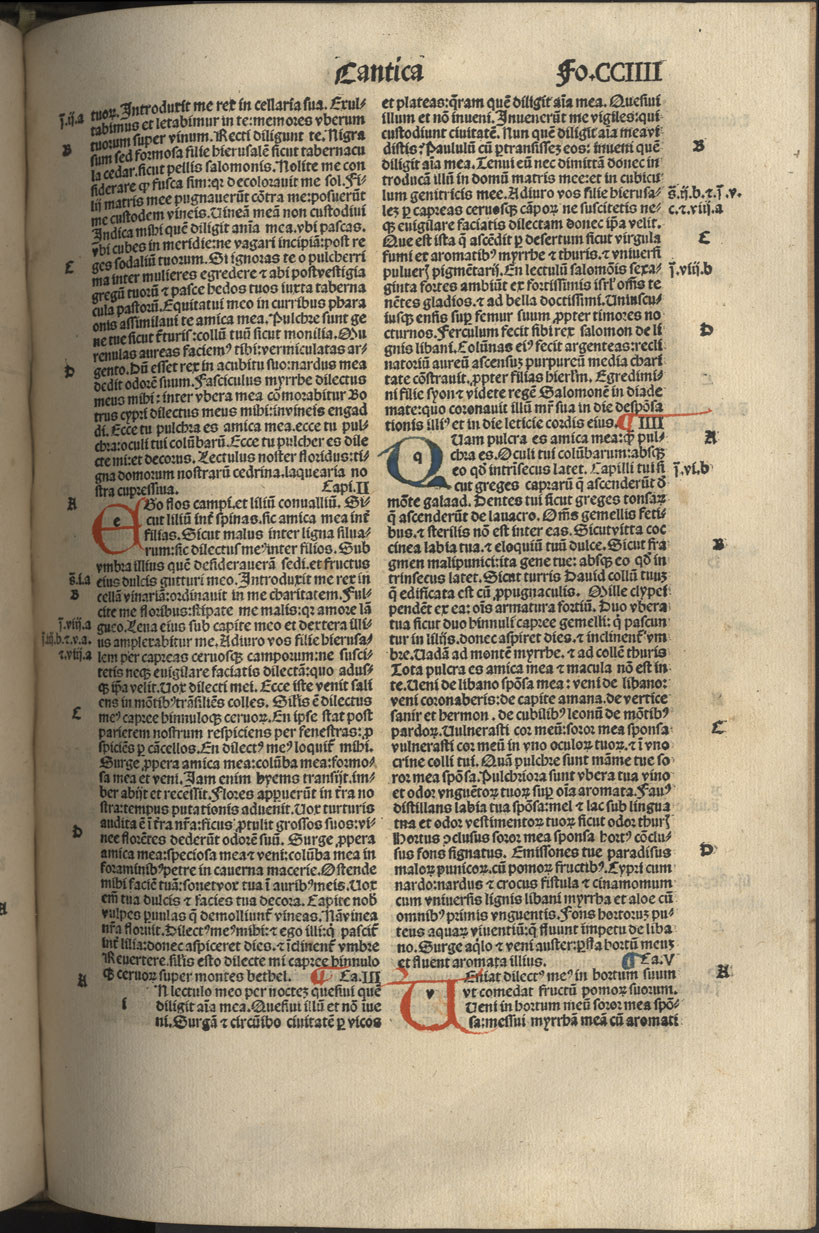 Cantica
Fo.CCIIII
ſ.ij.a
tuoꝝ. Introduxit me rex in cellaria sua. Exul-
tabimus et letabimur in te: memores vberum
B
tuorum super vinum. Recti diligunt te. Nigra
sum sed formosa filie hierusalē sicut tabernacu
la cedar. sicut pellis salomonis. Nolite me con
siderare ꝙ fusca sim: qꝛ decolorauit me sol. Fi-
lij matris mee pugnauerūt cōtra me: posuerūt
me custodem vineis. Uineā meā non custodiui
Indica mihi quē diligit anīa mea. vbi pascas.
vbi cubes in meridie: ne vagari incipiā: post re
ges sodaliū tuorum. Si ignoras te o pulcherri
C
ma inter mulieres egredere ⁊ abi post vestigia
gregū tuorū ⁊ pasce hedos tuos iuxta taberna
cula pastorū. Equitatui meo in curribus phara
onis assimilaui te amica mea. Pulchre sunt ge
ne tue sicut t̄turis: collū tuū sicut monilia. Mu
renulas aureas faciemꝰ tibi: vermiculatas ar-
D
gento. Dū esset rex in acubitu suo: nardus mea
dedit odorē suum. Fasciculus myrrhe dilectus
meus mihi: inter vbera mea cōmorabitur Bo
trus cypri dilectus meus mihi: in vineis engad
di. Ecce tu pulchra es amica mea. ecce tu pul-
chra: oculi tui colūbarū. Ecce tu pulcher es dile
cte mi: et decorus. Lectulus noster floridus: ti-
gna domorum nostrarū cedrina. laquearia no
stra cupressina. Capi.II
A
e
EBo flos campi. et liliū conualliū. Si-
cut liliū int̄ spinas. sic amica mea int̄
filias. Sicut malus inter ligna silua-
rum: sic dilectus meꝰ inter filios. Sub
vmbra illius quē desideraueram sedi. et fructus
s̄.i.a
eius dulcis gutturi meo. Introduxit me rex in
B
cellā vinariā: ordinauit in me charitatem. Ful-
cite me floribus: stipate me malis: qꝛ amore lā
ſ.viij.a
gueo. Leua eius sub capite meo et dextera illi-
ſ.iij.b.⁊.v.a.
us amplexabitur me. Adiuro vos filie hierusa-
⁊.viij.a
lem per capreas ceruosqꝫ camporum: ne susci-
tetis neqꝫ euigilare faciatis dilectā: quo adus-
qꝫ ip̄a velit. Uox dilecti mei. Ecce iste venit sali
ens in mōtibꝰ: trāsiliēs colles. Sil̄is ē dilectus
C
meꝰ capree hinnuloqꝫ ceruoꝝ. En ipse stat post
parietem nostrum respiciens per fenestras: ꝓ
spiciēs ꝑ cācellos. En dilectꝰ meꝰ loquit̄ mihi.
Surge ꝓpera amica mea: colūba mea: formo-
sa mea et veni. Jam enim hyems transijt. im-
ber abijt et recessit. Flores apparuerūt in t̄ra no
stra: tempus putationis aduenit. Uox turturis
audita ē ī t̄ra nr̄a: ficus ꝓtulit grossos suos: vi-
D
nee florētes dederūt odorē suū. Surge ꝓpera
amica mea: speciosa mea ⁊ veni: colūba mea in
foraminibꝰ petre in cauerna macerie. Ostende
mihi faciē tuā: sonet vox tua ī auribꝰ meis. Uox
em̄ tua dulcis ⁊ facies tua decora. Capite nob̄
vulpes paruulas q̄ demoliunt̄ vineas. Nā vinea
nr̄a floruit. Dilectꝰ meꝰ mihi: ⁊ ego illi: q̄ pascit̄
int̄ lilia: donec aspiceret dies. ⁊ īclinent̄ vmbre
Reuertere. sil̄is esto dilecte mi capree hinnulo
A
qꝫ ceruoꝝ super montes bethel. Ca.III
i
N lectulo meo per noctez quesiui quē
diligit aīa mea. Quesiui illū et nō īue
ni. Surgā ⁊ circūibo ciuitatē ꝑ vicos
et plateas: q̄ram quē diligit aīa mea. Quesiui
illum et nō inueni. Inuenerūt me vigiles: qui
custodiunt ciuitatē. Nun quē diligit aīa mea vi
distis? Paululū cū ꝑtransissez eos: inueni quē
B
diligit aīa mea. Tenui eū nec dimittā donec in
troducā illū in domū matris mee: et in cubicu
lum genitricis mee. Adiuro vos filie hierusa-
s̄.ij.b.⁊.ſ.v.
lez ꝑ capreas ceruosqꝫ cāpoꝝ ne suscitetis ne-
c.⁊.viij.a
qꝫ euigilare faciatis dilectam donec ip̄a velit.
Que est ista q̄ ascēdit ꝑ desertum sicut virgula
C
fumi et aromatibꝰ myrrhe ⁊ thuris. ⁊ vniuersi
pulueꝝ pigmētarij. En lectulū salomōis sexa-
ſ.viij.b
ginta fortes ambiūt ex fortissimis isrl̄ om̄s te
nētes gladios. ⁊ ad bella doctissimi. Uniuscu-
iusqꝫ ensis suꝑ femur suum ꝓpter timores no
cturnos. Ferculum fecit sibi rex salomon de li
D
gnis libani. Colūnas eiꝰ fecit argenteas: recli
natoriū aureū ascensuꝫ purpureū media chari
tate cōstrauit. ꝓpter filias hierl̄m. Egredimi-
ni filie syon ⁊ videte regē Salomonē in diade
mate: quo coronauit illū mr̄ sua in die despōsa
tionis illiꝰ et in die leticie cordis eius. IIII
q
QUam pulcra es amica mea: ꝙ pul-
A
chra es. Oculi tui colūbarum: absqꝫ
eo qd̄ intrīsecus latet. Capilli tui si
ſ.vi.b
cut greges caprarū q̄ ascenderūt d̄
mōte galaad. Dentes tui sicut greges tonsaꝝ
q̄ ascenderūt de lauacro. Om̄s gemellis feti-
bus. ⁊ sterilis nō est inter eas. Sicut vitta coc
cinea labia tua. ⁊ eloquiū tuū dulce. Sicut fra
B
gmen malipunici: ita gene tue: absqꝫ eo qd̄ in
trinsecus latet. Sicut turris Dauid collū tuuꝫ
q̄ edificata est cū ꝓpugnaculis. Mille clypei
pendēt ex ea: oīs armatura fortiū. Duo vbera
tua sicut duo hinnuli capree gemelli: q̄ pascun
tur in lilijs. donec aspiret dies. ⁊ inclinent̄ vm
bre. Uadā ad montē myrrhe. ⁊ ad collē thuris
Tota pulcra es amica mea ⁊ macula nō est in
te. Ueni de libano spōsa mea: veni de libano:
veni coronaberis: de capite amana. de vertice
sanir et hermon. de cubilibꝰ leonū de mōtibꝰ
pardoꝝ. Uulnerasti cor meū: soror mea sponsa
C
vulnerasti cor meū in vno oculoꝝ tuoꝝ. ⁊ ī vno
crine colli tui. Quā pulchre sunt māme tue so
ror mea spōsa. Pulchriora sunt vbera tua vino
et odor vnguētoꝝ tuoꝝ suꝑ oīa aromata. Fauꝰ
distillans labia tua spōsa: mel ⁊ lac sub lingua
tua et odor vestimentoꝝ tuoꝝ sicut odor thurꝭ
Hortus ↄclusus soror mea sponsa hortꝰ cōclu-
sus fons signatus. Emissiones tue paradisus
D
maloꝝ punicoꝝ. cū pomoꝝ fructibꝰ. Cypri cum
nardo: nardus ⁊ crocus fistula ⁊ cinamomum
cum vniuersis lignis libani myrrha et aloe cū
omnibꝰ primis vnguentis. Fons hortoruꝫ pu-
teus aquaꝝ viuentiū: q̄ fluunt impetu de liba
no. Surge aq̄lo ⁊ veni auster: ꝑfla hortū meuꝫ
et fluent aromata illius. Ca.V
v
UEniat dilectꝰ meꝰ in hortum suum
A
vt comedat fructū pomoꝝ suorum.
Ueni in hortum meū soror mea spō-
sa: messui myrrhā meā cū aromati